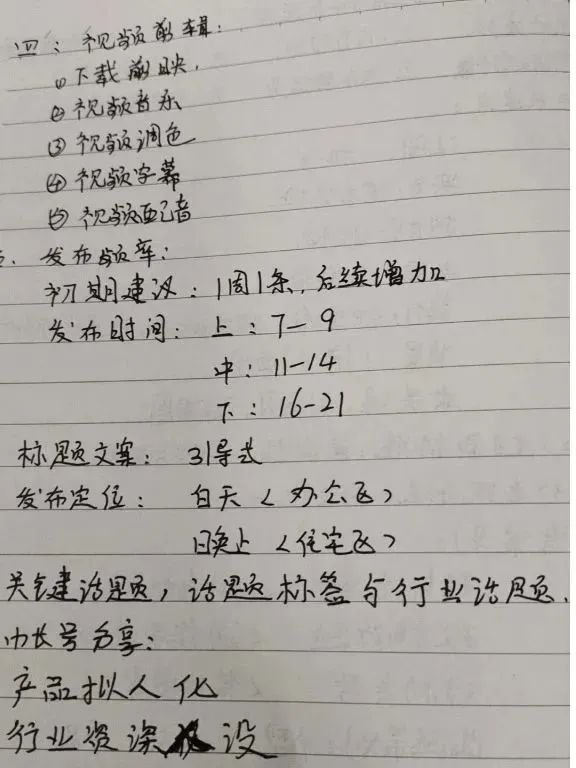 四：视频剪辑：
① 下载剪映.
② 视频音乐
③ 视频调色
④ 视频字幕
⑤ 视频配音
五. 发布频率：
初期建议：1周1条，后续增加
发布时间：上：7-9
中：11-14
下：16-21
标题文案：引导式
发布定位：白天〈办公区〉
晚上〈住宅区〉
关键话题，话题标签与行业话题.
号分享：
产品拟人化
行业资深 设